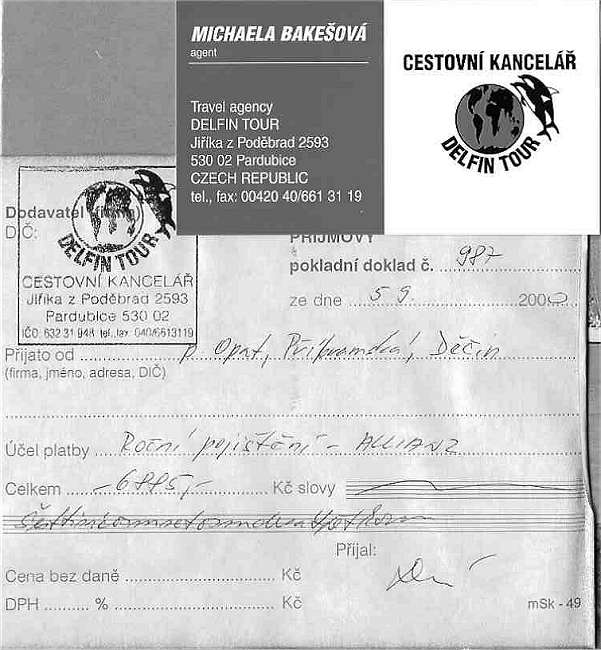 MICHAELA BAKEŠOVÁ
agent
Travel agency
DELFIN TOUR
Jiříka z Poděbrad 2593
530 02 Pardubice
CZECH REPUBLIC
tel., fax: 00420 40/661 31 19
CESTOVNÍ KANCELÁŘ
DELFIN TOUR
Dodavatel (firma)
DIČ:
DELFIN TOUR
CESTOVNÍ KANCELÁŘ
Jiříka z Poděbrad 2593
Pardubice 530 02
IČO: 632 31 948 tel., fax 040/6613119
PŘÍJMOVÝ
pokladní doklad č. 987
ze dne 5 9. 2000
Přijato od p. Opat, Příbramská, Děčín
(firma, jméno, adresa, DIČ)
Účel platby Roční pojištění - ALLIANZ
Celkem -6885,- Kč slovy
Šesttisícosmsetosmdesátpět korun
Přijal:
Cena bez daně Kč
DPH % Kč
mSk - 49